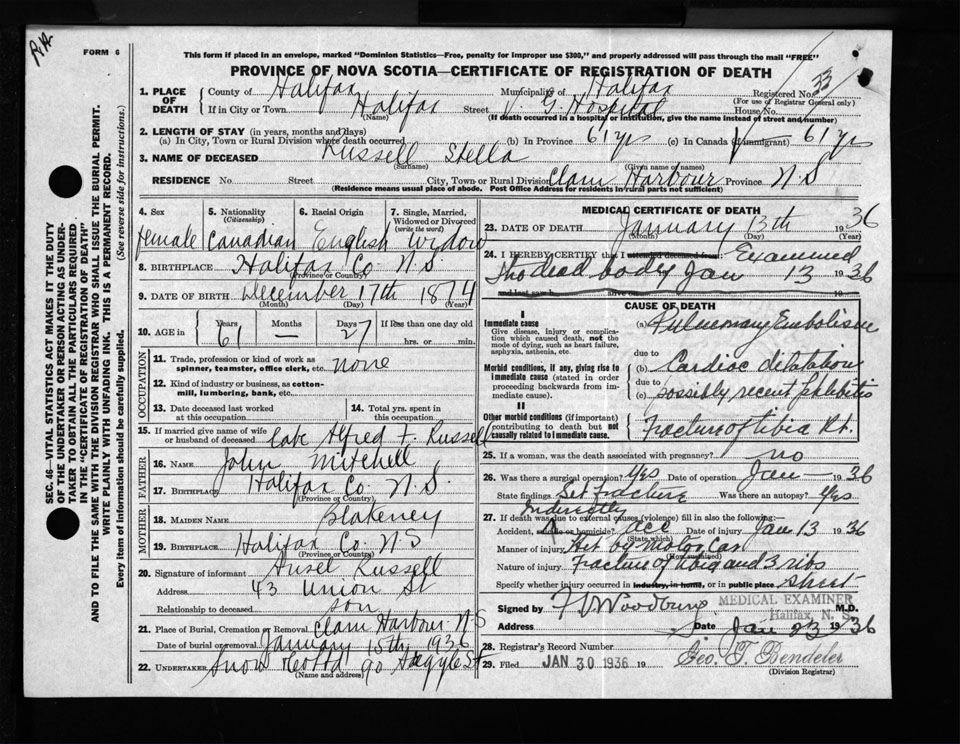 R.H.
FORM 6
This form if placed in an envelope, marked "Dominion Statistics—Free, penalty for improper use $300," and properly addressed will pass through the mail "FREE"
PROVINCE OF NOVA SCOTIA—CERTIFICATE OF REGISTRATION OF DEATH
33
1. PLACE OF DEATH County of Halifax Municipality of Halifax Registered No.
(For use of Registrar General only)
If in City or Town Halifax Street V. G. Hospital House No.
(Name) (If death occurred in a hospital or institution, give the name instead of street and number)
2. LENGTH OF STAY (in years, months and days)
(a) In City, Town or Rural Division where death occurred (b) In Province 61 yrs (c) In Canada (if immigrant) 61 yrs
3. NAME OF DECEASED Russell Stella
(Surname) (Given name or names)
RESIDENCE No. Street City, Town or Rural Division Clam Harbour Province N.S
(Residence means usual place of abode. Post Office Address for residents in rural parts not sufficient)
4. Sex 5. Nationality (Citizenship) 6. Racial Origin 7. Single, Married, Widowed or Divorced (write the word)
female Canadian English Widow
8. BIRTHPLACE Halifax Co. N.S.
(Province or Country)
9. DATE OF BIRTH December 17th 1874
(Month) (Day) (Year)
10. AGE in Years Months Days If less than one day old
61 — 27 hrs. or min.
OCCUPATION
11. Trade, profession or kind of work as spinner, teamster, office clerk, etc. none
12. Kind of industry or business, as cotton-mill, lumbering, bank, etc.
13. Date deceased last worked at this occupation 14. Total yrs. spent in this occupation
15. If married give name of wife or husband of deceased late Alfred F. Russell
FATHER
16. NAME John Mitchell
17. BIRTHPLACE Halifax Co. N.S.
(Province or Country)
MOTHER
18. MAIDEN NAME Blakeney
19. BIRTHPLACE Halifax Co. N.S
(Province or Country)
20. Signature of informant Ansel Russell
Address 43 Union St
Relationship to deceased son
21. Place of Burial, Cremation or Removal Clam Harbour N.S
Date of burial or removal January 15th 1936
22. UNDERTAKER Snow & Co Ltd 90 Argyle St
(Name and address)
MEDICAL CERTIFICATE OF DEATH
23. DATE OF DEATH January 13th 1936
(Month) (Day) (Year)
24. I HEREBY CERTIFY that I attended deceased from: Examined
the dead body Jan 13 1936
and last saw h alive on
CAUSE OF DEATH
I
Immediate cause
Give disease, injury or complication which caused death, not the mode of dying, such as heart failure, asphyxia, asthenia, etc.
(a) Pulmonary Embolism
due to
Morbid conditions, if any, giving rise to immediate cause (stated in order proceeding backwards from immediate)
(b) Cardiac dilatation
due to
(c) possibly recent phlebitis
II
Other morbid conditions (if important) contributing to death but not causally related to immediate cause.
Fracture of tibia Rt.
25. If a woman, was the death associated with pregnancy? no
26. Was there a surgical operation? Yes Date of operation Jan — 1936
State findings Set fracture Was there an autopsy? Yes
Indirectly
27. If death was due to external causes (violence) fill in also the following:—
Accident, suicide or homicide? Acc Date of injury Jan 13 1936
(State which)
Manner of injury Hit by motor car
(How sustained)
Nature of injury Fracture of tibia and 3 ribs
Specify whether injury occurred in industry, in home, or in public place street
Signed by F V Woodbury M.D.
MEDICAL EXAMINER
Halifax, N. S.
Address Date Jan 23 1936
28. Registrar's Record Number
29. Filed JAN 30 1936 19 Geo. T. Bendeler
(Division Registrar)
SEC. 46—VITAL STATISTICS ACT MAKES IT THE DUTY
OF THE UNDERTAKER OR PERSON ACTING AS UNDER-
TAKER TO OBTAIN ALL THE PARTICULARS REQUIRED
IN THE "CERTIFICATE OF REGISTRATION OF DEATH"
AND TO FILE THE SAME WITH THE DIVISION REGISTRAR WHO SHALL ISSUE THE BURIAL PERMIT.
WRITE PLAINLY WITH UNFADING INK. THIS IS A PERMANENT RECORD.
Every item of information should be carefully supplied. (See reverse side for instructions.)